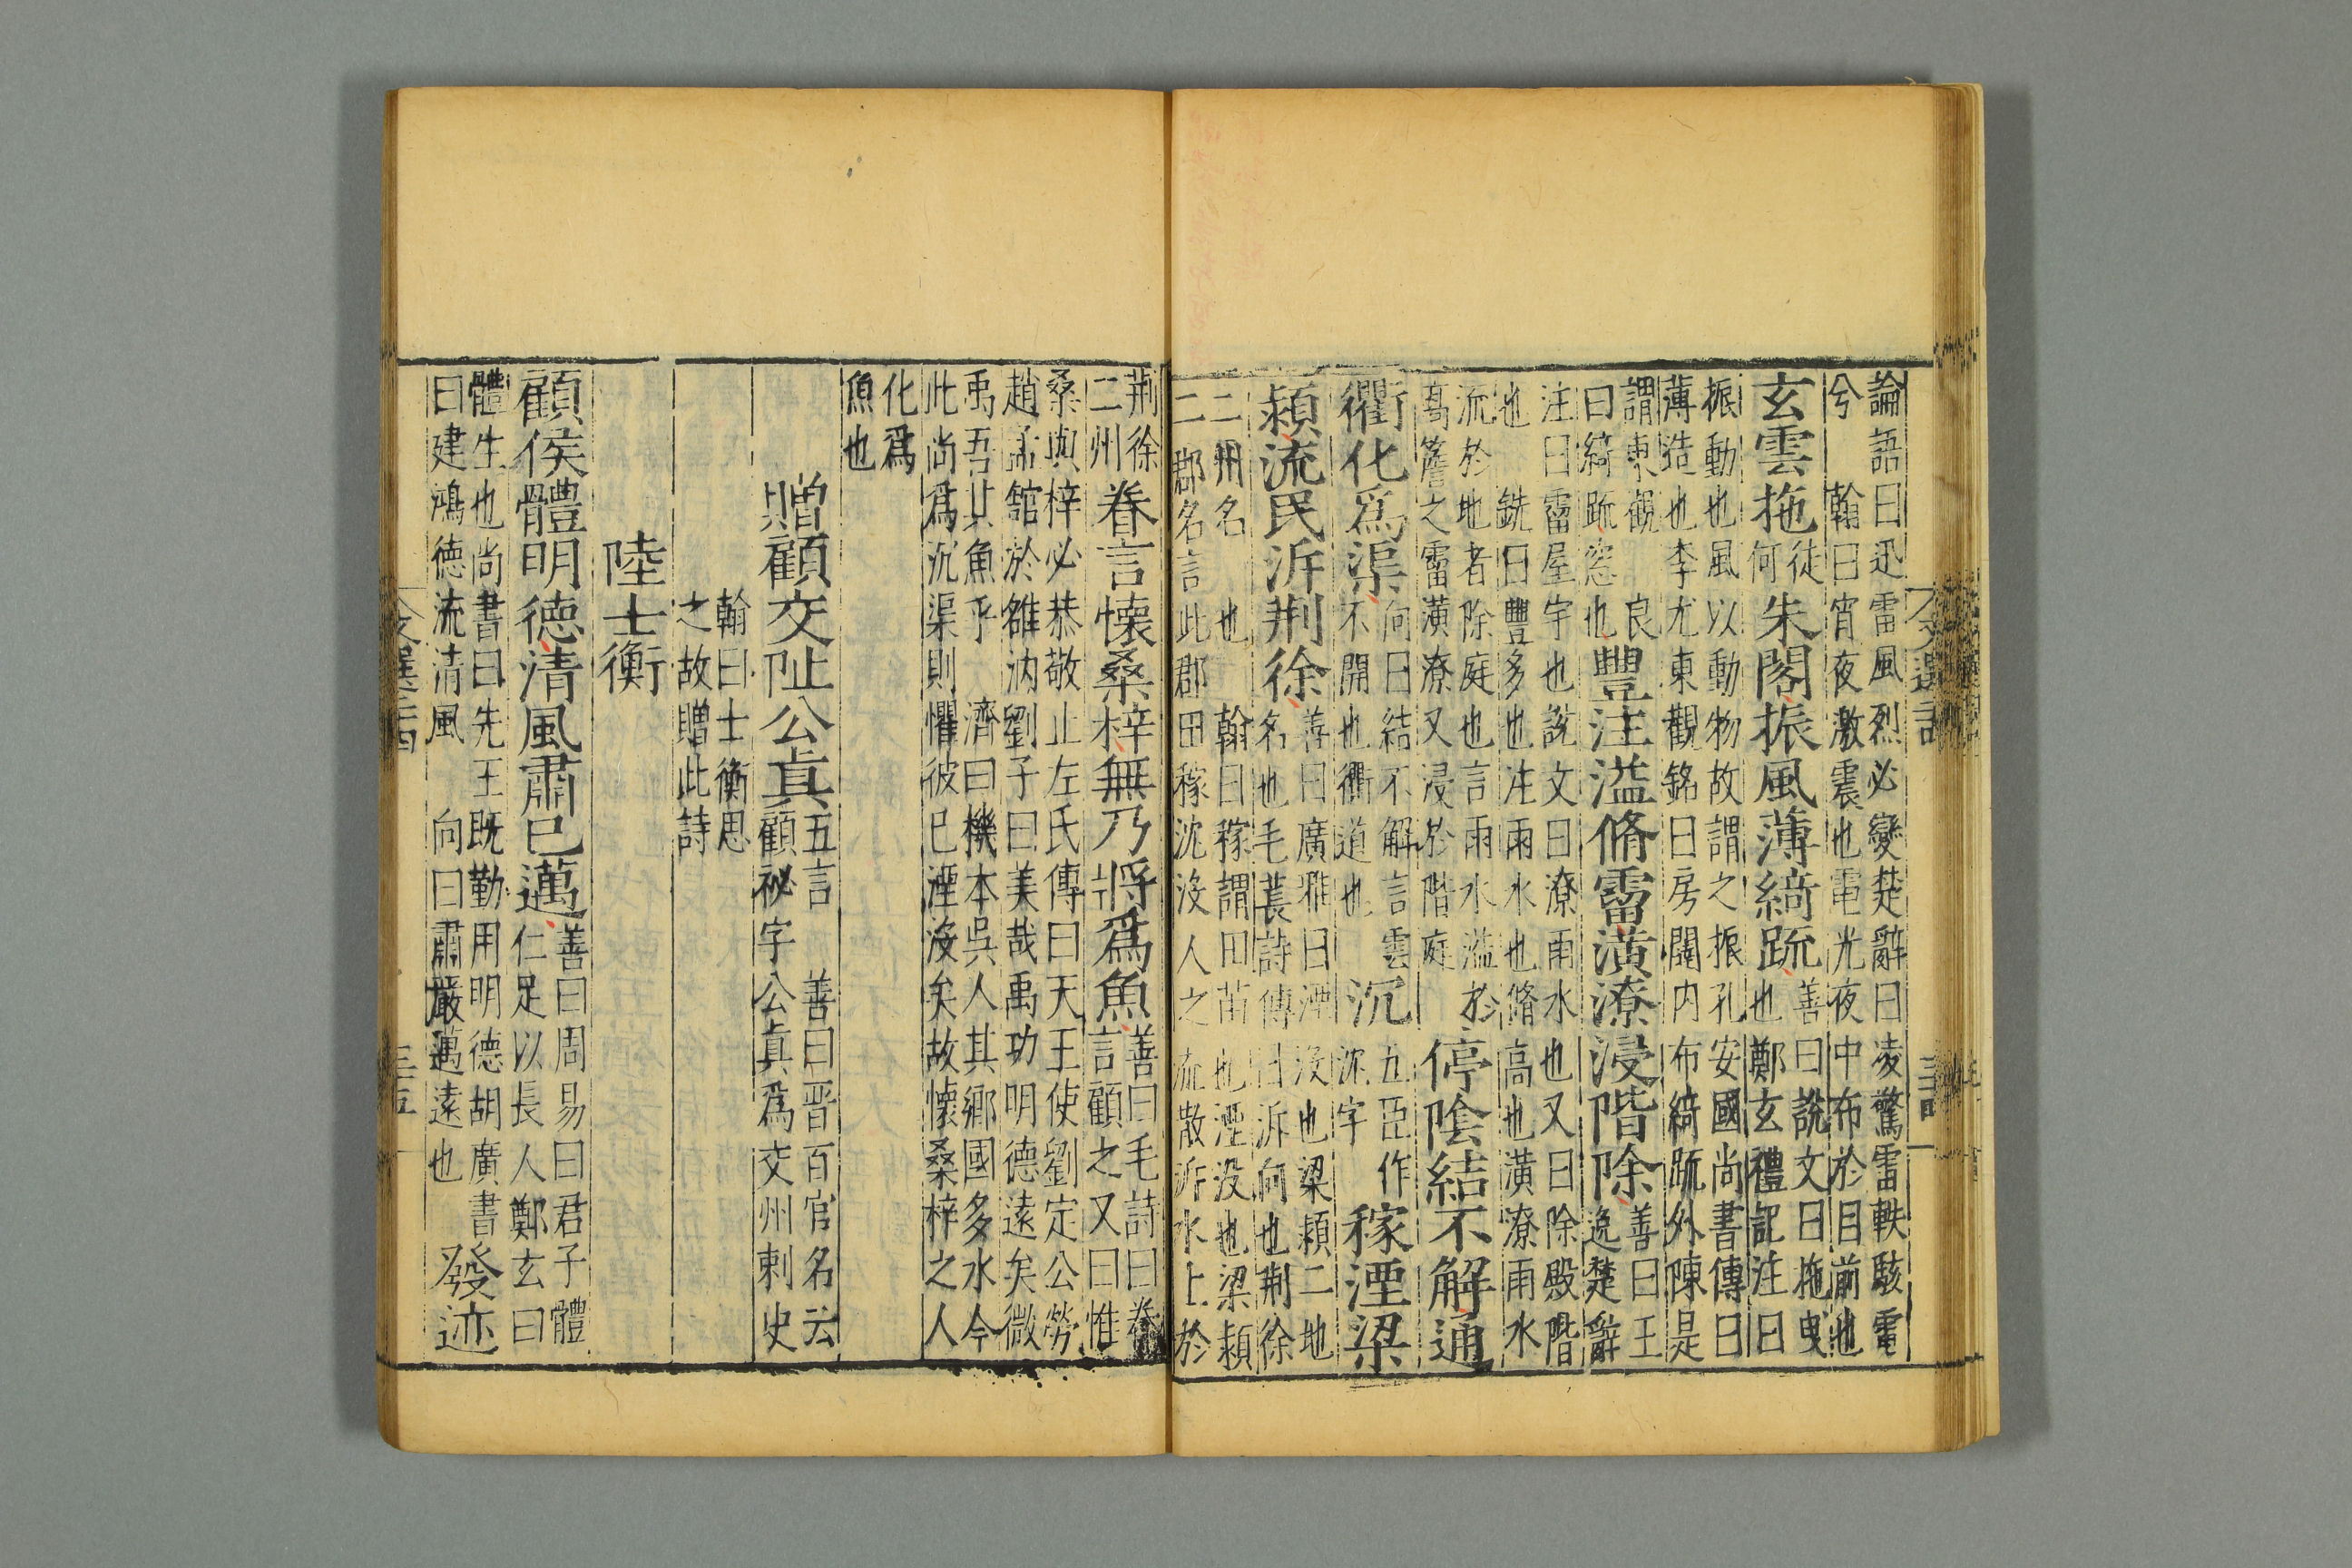 論語曰迅雷風烈必變楚辭曰凌驚雷軼駭電
兮　翰曰宵夜激震也電光夜中布於目前也
玄雲拖徒何朱閣振風薄綺疏善曰說文曰拖曳也鄭玄禮記注曰
振動也風以動物故謂之振孔安國尚書傳曰
薄造也李尤東觀銘曰房闥内布綺疏外陳是
謂東觀　良
曰綺疏窓也豐注溢脩霤潢潦浸階除善曰王逸楚辭
注曰霤屋宇也說文曰潦雨水也又曰除殿階
也　銑曰豐多也注雨水也脩高也潢潦雨水
流於地者除庭也言雨水溢於
高簷之霤潢潦又浸於階庭
停陰結不解通
衢化爲渠向曰結不解言雲不開也衢道也沉五臣作沈字稼湮梁
潁流民泝荆徐善曰廣雅曰湮沒也梁潁二地名也毛萇詩傳曰泝向也荆徐
二州名也　翰曰稼謂田苗也湮没也梁潁
二郡名言此郡田稼沈没人之流散泝水上於
荆徐
二州
眷言懷桑梓無乃將爲魚善曰毛詩曰眷言顧之又曰惟
桑與梓必恭敬止左氏傳曰天王使劉定公勞
趙孟舘於雒汭劉子曰美哉禹功明德遠矣微
禹吾其魚乎　濟曰機本吳人其鄉國多水今
此尚爲沉渠則懼彼已湮没矣故懷桑梓之人
化爲
魚也
贈顧交阯公眞五言　善曰晋百官名云
顧祕字公眞爲交州刺史
翰曰士衡思
之故贈此詩
陸士衡
顧侯體明德清風肅已邁善曰周易曰君子體仁足以長人鄭玄曰
體生也尚書曰先王既勤用明德胡廣書
曰建鴻德流清風　向曰肅嚴邁遠也
發迹
文選二十四
三十五